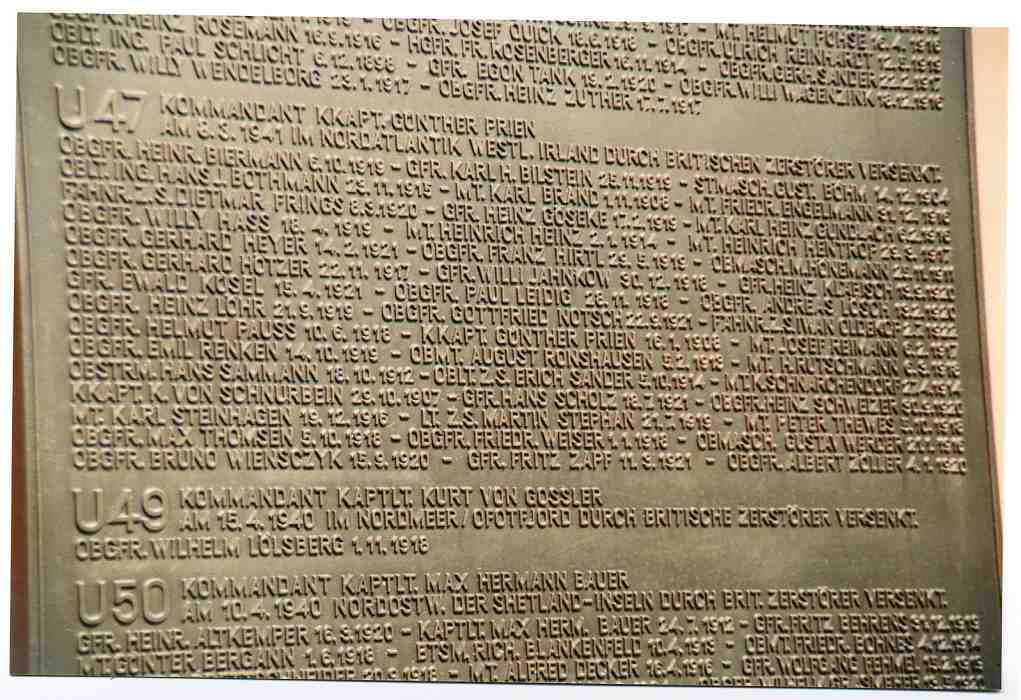 OBGFR. HEINZ ROSEMANN 16.9.1916 - OBGFR. JOSEF QUICK 18.6.1918 - MT. HELMUT POHSE 16.4.1916
OBLT. ING. PAUL SCHLICHT 6.12.1898 - HGFR. FR. ROSENBERGER 16.11.1914 - OBGFR. ULRICH REINHARDT 12.5.1919
OBGFR. WILLY WENDELBORG 23.1.1917 - GFR. EGON TANK 19.2.1920 - OBGFR. GERH. SANDER 22.2.1917
OBGFR. HEINZ ZUTHER 17.7.1917 - OBGFR. WILLI WAGENZINK 18.12.1916
U47 KOMMANDANT KKAPT. GÜNTHER PRIEN
AM 8.3.1941 IM NORDATLANTIK WESTL. IRLAND DURCH BRITISCHEN ZERSTÖRER VERSENKT.
OBGFR. HEINR. BIERMANN 6.10.1919 - GFR. KARL H. BILSTEIN 25.11.1919 - STMASCH. GUST. BÖHM 14.12.1904
OBLT. ING. HANS J. BOTHMANN 23.11.1915 - MT. KARL BRAND 1.11.1908 - MT. FRIEDR. ENGELMANN 31.12.1916
FÄHNR. Z. S. DIETMAR FRINGS 8.9.1920 - GFR. HEINZ GÖSEKE 17.2.1919 - MT. KARL HEINZ GUNDLACH 6.2.1916
OBGFR. WILLY HASS 18.4.1919 - MT. HEINRICH HEINZ 2.1.1914 - MT. HEINRICH HENTROP 29.3.1917
OBGFR. GERHARD HEYER 14.2.1921 - OBGFR. FRANZ HIRTL 29.5.1919 - OBMASCH. M. HÖNEMANN 25.11.1911
OBGFR. GERHARD HÖTZER 22.11.1917 - GFR. WILLI JAHNKOW 30.12.1918 - GFR. HEINZ KLABISCH 13.9.1920
GFR. EWALD KÖSEL 15.4.1921 - OBGFR. PAUL LEIDIG 28.11.1918 - OBGFR. ANDREAS LÖSCH 13.2.1920
OBGFR. HEINZ LÖHR 21.9.1919 - OBGFR. GOTTFRIED NÖTSCH 22.9.1921 - FÄHNR. Z. S. IWAN OLDEHOF 2.7.1922
OBGFR. HELMUT PAUSS 10.6.1918 - KKAPT. GÜNTHER PRIEN 16.1.1908 - MT. JOSEF REIMANN 6.2.1917
OBGFR. EMIL RENKEN 14.10.1919 - OBMT. AUGUST RONSHAUSEN 5.2.1913 - MT. H. RUTSCHMANN 6.9.1916
OBSTRM. HANS SAMMANN 18.10.1912 - OBLT. Z. S. ERICH SANDER 5.10.1914 - MT. K. SCHNARCHENDORF 27.4.1914
KKAPT. K. VON SCHNURBEIN 29.10.1907 - GFR. HANS SCHOLZ 18.7.1921 - OBGFR. HEINZ SCHWEZIER 30.9.1920
MT. KARL STEINHAGEN 19.12.1916 - LT. Z. S. MARTIN STEPHAN 21.7.1919 - MT. PETER THEWES 5.10.1916
OBGFR. MAX THOMSEN 5.10.1918 - OBGFR. FRIEDR. WEISER 1.1.1918 - OBMASCH. GUSTAV WERDER
OBGFR. BRUNO WIENSCZYK 15.9.1920 - GFR. FRITZ ZAPF 11.3.1921 - OBGFR. ALBERT ZÖLLER 4.1.1920
U49 KOMMANDANT KAPTLT. KURT VON GOSSLER
AM 15.4.1940 IM NORDMEER/OFOTFJORD DURCH BRITISCHE ZERSTÖRER VERSENKT.
OBGFR. WILHELM LOLSBERG 1.11.1918
U50 KOMMANDANT KAPTLT. MAX HERMANN BAUER
AM 10.4.1940 NORDOSTW. DER SHETLAND-INSELN DURCH BRIT. ZERSTÖRER VERSENKT.
GFR. HEINR. ALTKEMPER 16.3.1920 - KAPTLT. MAX HERM. BAUER 24.7.1912 - GFR. FRITZ BEHRENS 31.12.1919
MT. GÜNTER BERGANN 1.6.1918 - BTSM. RICH. BLANKENFELD 10.4.1913 - OBMT. FRIEDR. BOHNES 4.12.1914
MT. ALFRED DECKER 16.4.1916 - GFR. WOLFGANG FEHMEL 15.2.1919